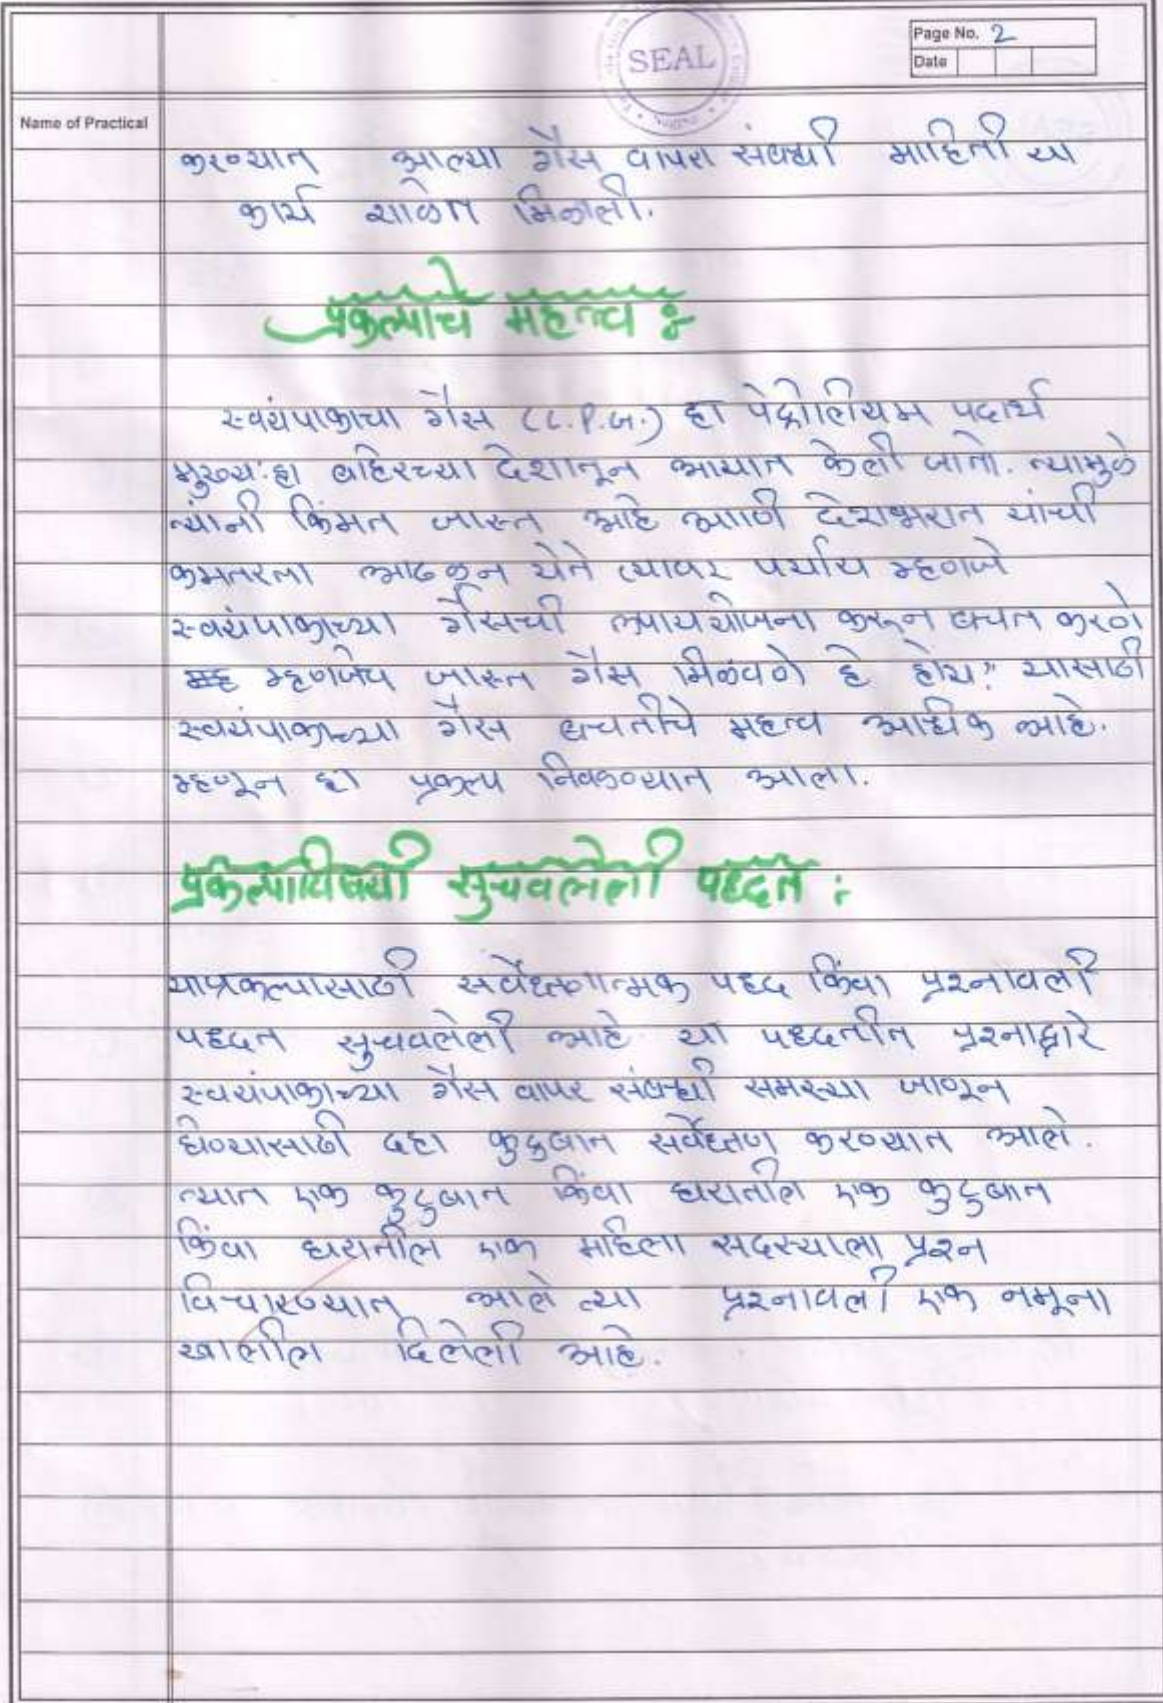 SEAL
Page No. 2
Date
Name of Practical
करण्यात आल्या गैस वापरा संबधी माहिती या
कार्य शाळेत मिळाली.
प्रकल्पाचे महत्त्व :
स्वयंपाकाचा गैस (L.P.G.) हा पेट्रोलियम पदार्थ
मुख्य: हा बहिरच्या देशातून आयात केली जाते. त्यामुळे
त्यांनी किंमत जास्त आहे आणि देशभरात यांची
कमतरता आढळून येते त्यावर पर्याय म्हणजे
स्वयंपाकाच्या गैसची उपाययोजना करून बचत करणे
म्हणजेच जास्त गैस मिळवणे हे होय." यासाठी
स्वयंपाकाच्या गैस बचतीचे महत्व अधिक आहे.
म्हणून हा प्रकल्प निवडण्यात आला.
प्रकल्पाविषयी सुचवलेली पध्दत :
याप्रकल्पासाठी सर्वेक्षणात्मक पध्द किंवा प्रश्नावली
पध्दत सुचवलेली आहे. या पध्दतीत प्रश्नाद्वारे
स्वयंपाकाच्या गैस वापर संबन्धी समस्या जाणून
घेण्यासाठी दहा कुटुबात सर्वेक्षण करण्यात आले.
त्यात एक कुटुबात किंवा घरातील एक कुटुबात
किंवा घरातील एक महिला सदस्याला प्रश्न
विचारण्यात आले त्या प्रश्नावली एक नमूना
खालील दिलेली आहे.